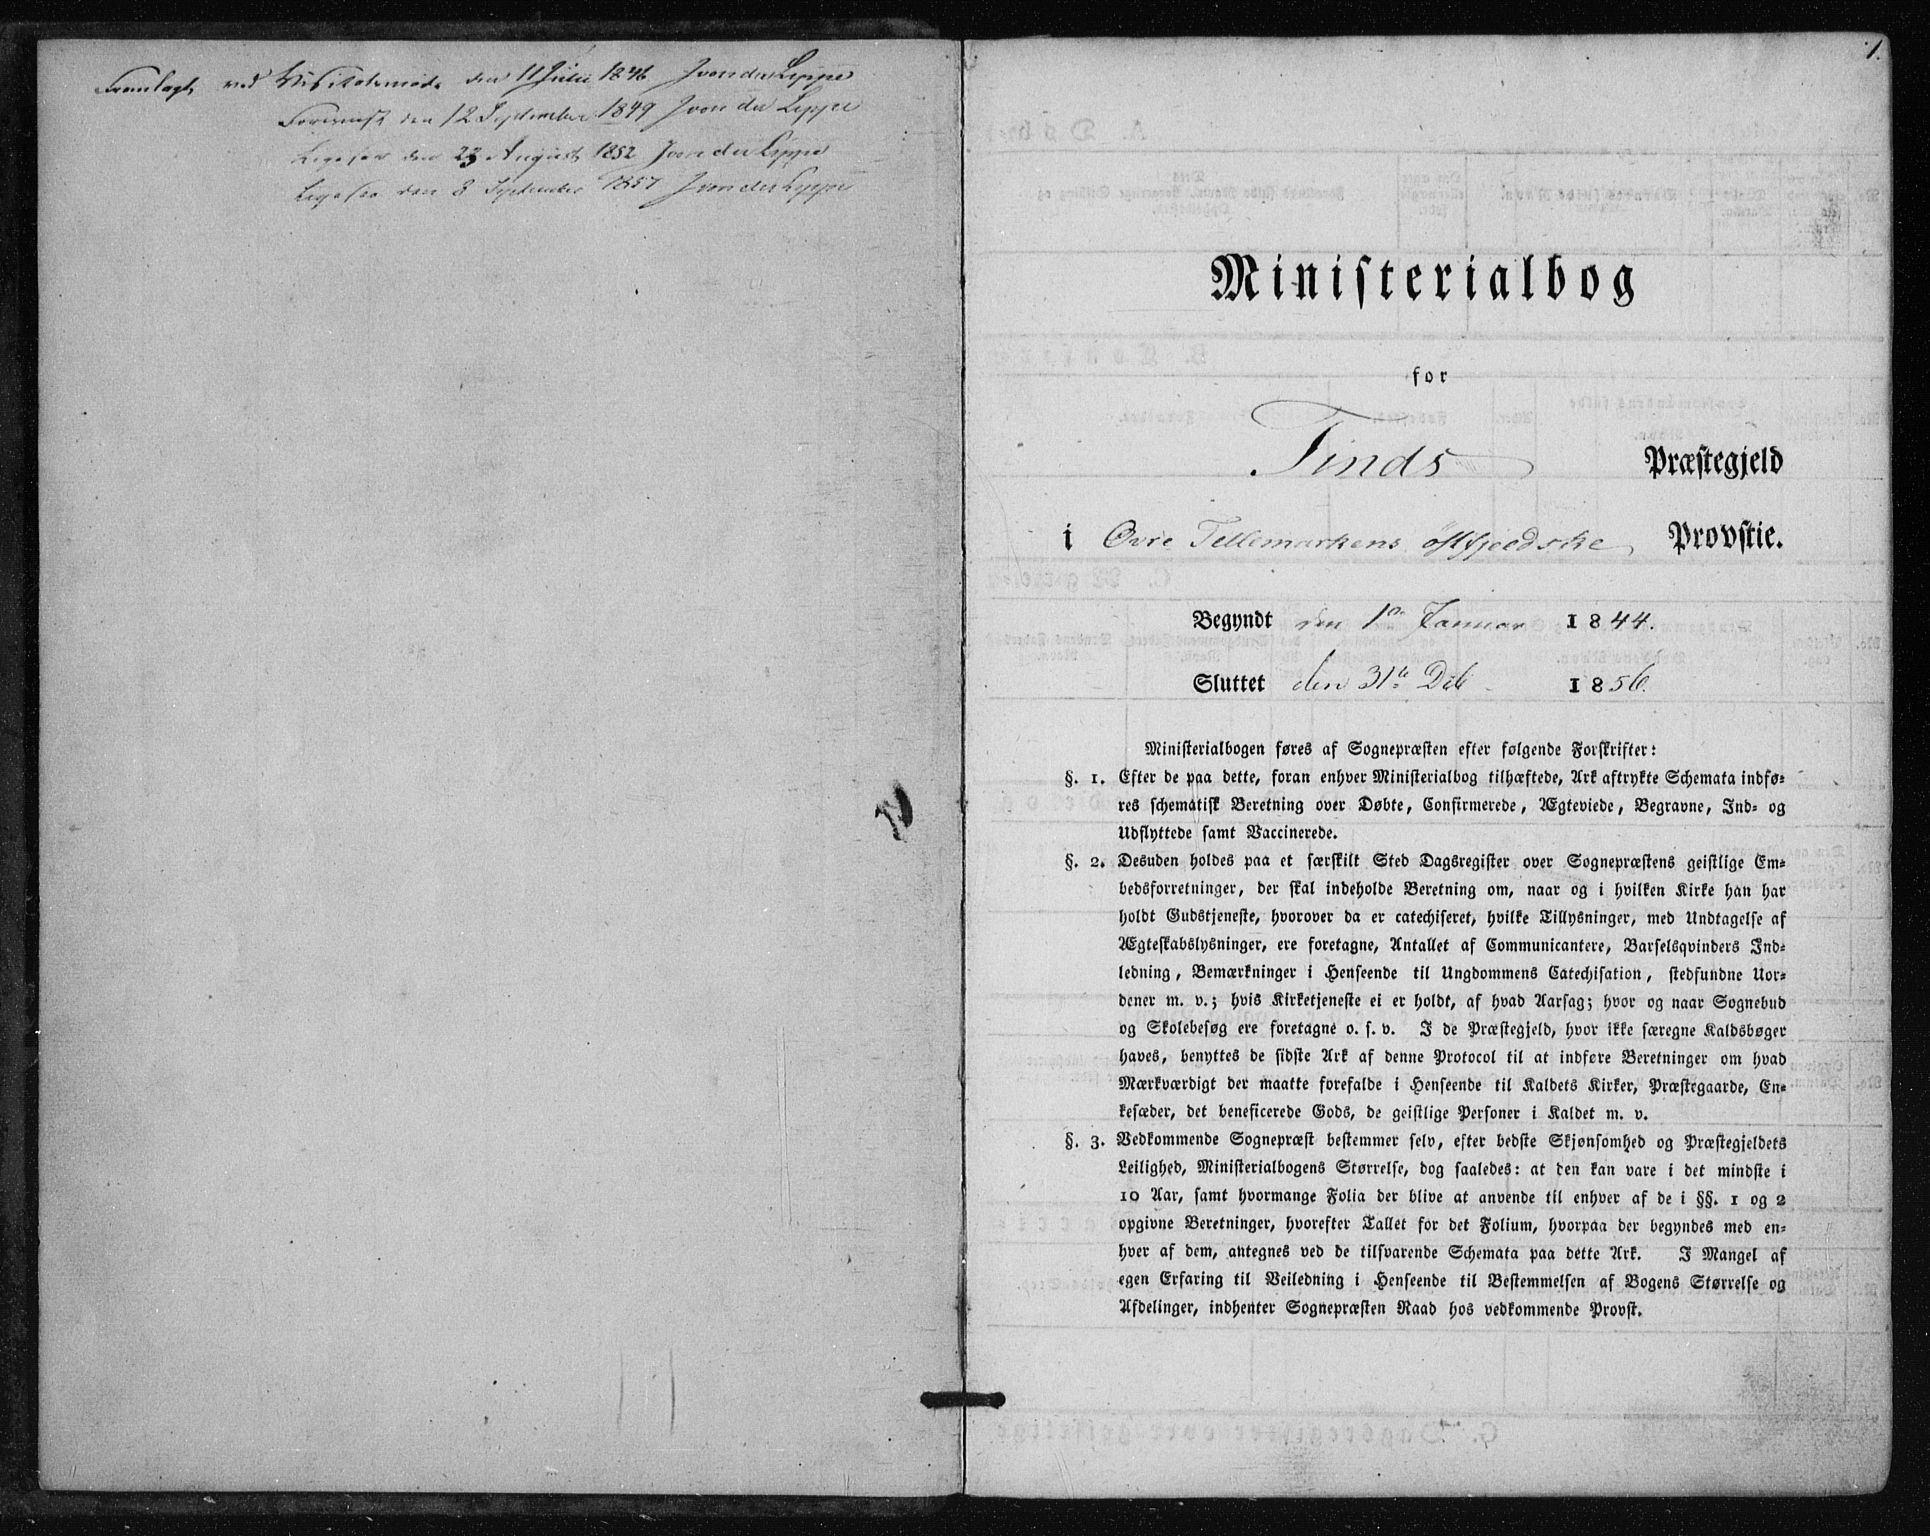 Fremlagt ved Visitatsmøde den 11 Julii 1846 J von der Lippe
Foreviist den 12 September 1849 J von der Lippe
Ligesaa den 23 August 1852 J von der Lippe
Ligesaa den 8 September 1857 J von der Lippe
1.
Ministerialbog
for
Tinds Præstegjeld
i Øvre Tellemarkens østfjeldske Provstie.
Begyndt den 1ste Januar 1844.
Sluttet den 31te Dcb 1856.
Ministerialbogen føres af Sognepræsten efter følgende Forskrifter:
§. 1. Efter de paa dette, foran enhver Ministerialbog tilhæftede, Ark aftrykte Schemata indfø-
res schematisk Beretning over Døbte, Confirmerede, Ægteviede, Begravne, Ind- og
Udflyttede samt Vaccinerede.
§. 2. Desuden holdes paa et særskilt Sted Dagsregister over Sognepræstens geistlige Em-
bedsforretninger, der skal indeholde Beretning om, naar og i hvilken Kirke han har
holdt Gudstjeneste, hvorover da er catechiseret, hvilke Tillysninger, med Undtagelse af
Ægteskabslysninger, ere foretagne, Antallet af Communicantere, Barselsqvinders Ind-
ledning, Bemærkninger i Henseende til Ungdommens Catechisation, stedfundne Uor-
dener m. v.; hvis Kirketjeneste ei er holdt, af hvad Aarsag; hvor og naar Sognebud
og Skolebesøg ere foretagne o. s. v. I de Præstegjeld, hvor ikke særegne Kaldsbøger
haves, benyttes de sidste Ark af denne Protocol til at indføre Beretninger om hvad
Mærkværdigt der maatte forefalde i Henseende til Kaldets Kirker, Præstegaarde, En-
kesæder, det beneficerede Gods, de geistlige Personer i Kaldet m. v.
§. 3. Vedkommende Sognepræst bestemmer selv, efter bedste Skjønsomhed og Præstegjeldets
Leilighed, Ministerialbogens Størrelse, dog saaledes: at den kan vare i det mindste i
10 Aar, samt hvormange Folia der blive at anvende til enhver af de i §§. 1 og 2
opgivne Beretninger, hvorefter Tallet for det Folium, hvorpaa der begyndes med en-
hver af dem, antegnes ved de tilsvarende Schemata paa dette Ark. I Mangel af
egen Erfaring til Veiledning i Henseende til Bestemmelsen af Bogens Størrelse og
Afdelinger, indhenter Sognepræsten Raad hos vedkommende Provst.